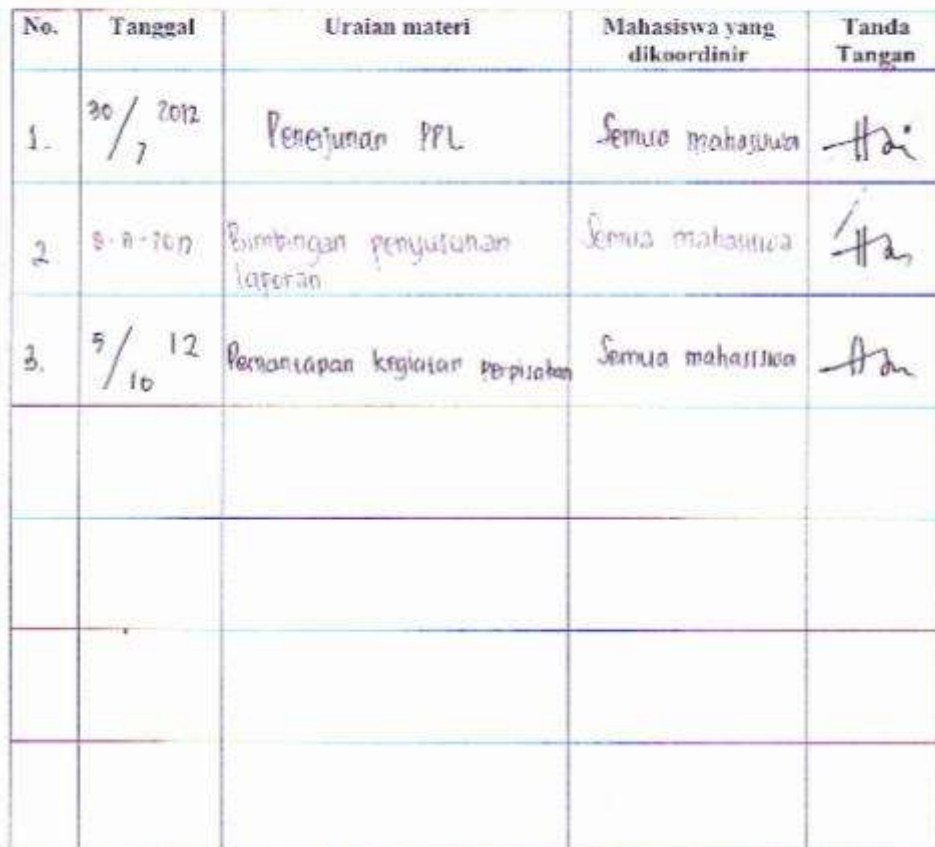 No. Tanggal Uraian materi Mahasiswa yang dikoordinir Tanda Tangan
1. 30/7 2012 Penerjunan PPL Semua mahasiswa
2 Bimbingan penyusunan laporan Semua mahasiswa
3. 5/10 12 Pemantapan kegiatan perpisahan Semua mahasiswa